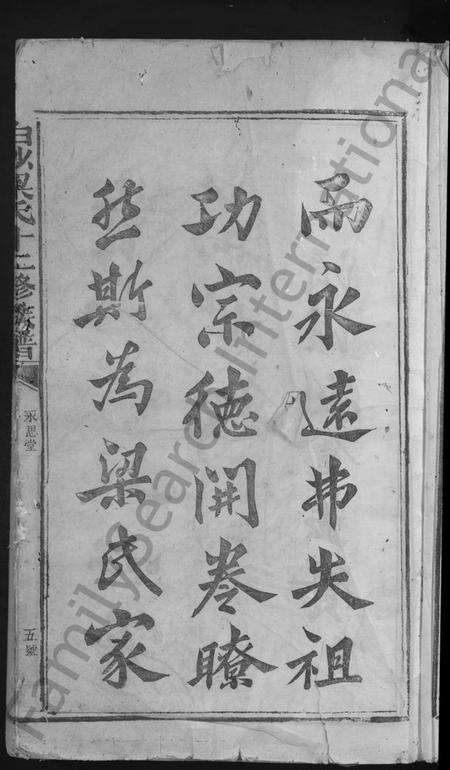 而永遠弗失祖
功宗德開卷瞭
然斯為梁氏家
氏十二修族譜
永思堂
五號
FamilySearch International